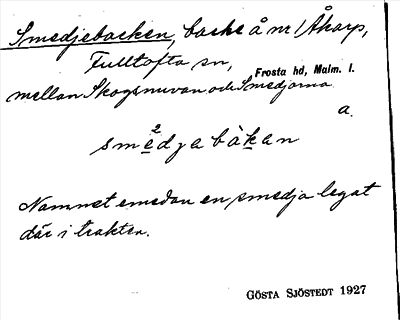 Smedjebacken, backe å nr 1 Åkarp,
Fulltofta sn, Frosta hd, Malm. l.
mellan Skogsmuvan och Smedjorna
a.
smedjabakan
2
Namnet emedan en smedja legat
där i trakten.
GÖSTA SJÖSTEDT 1927